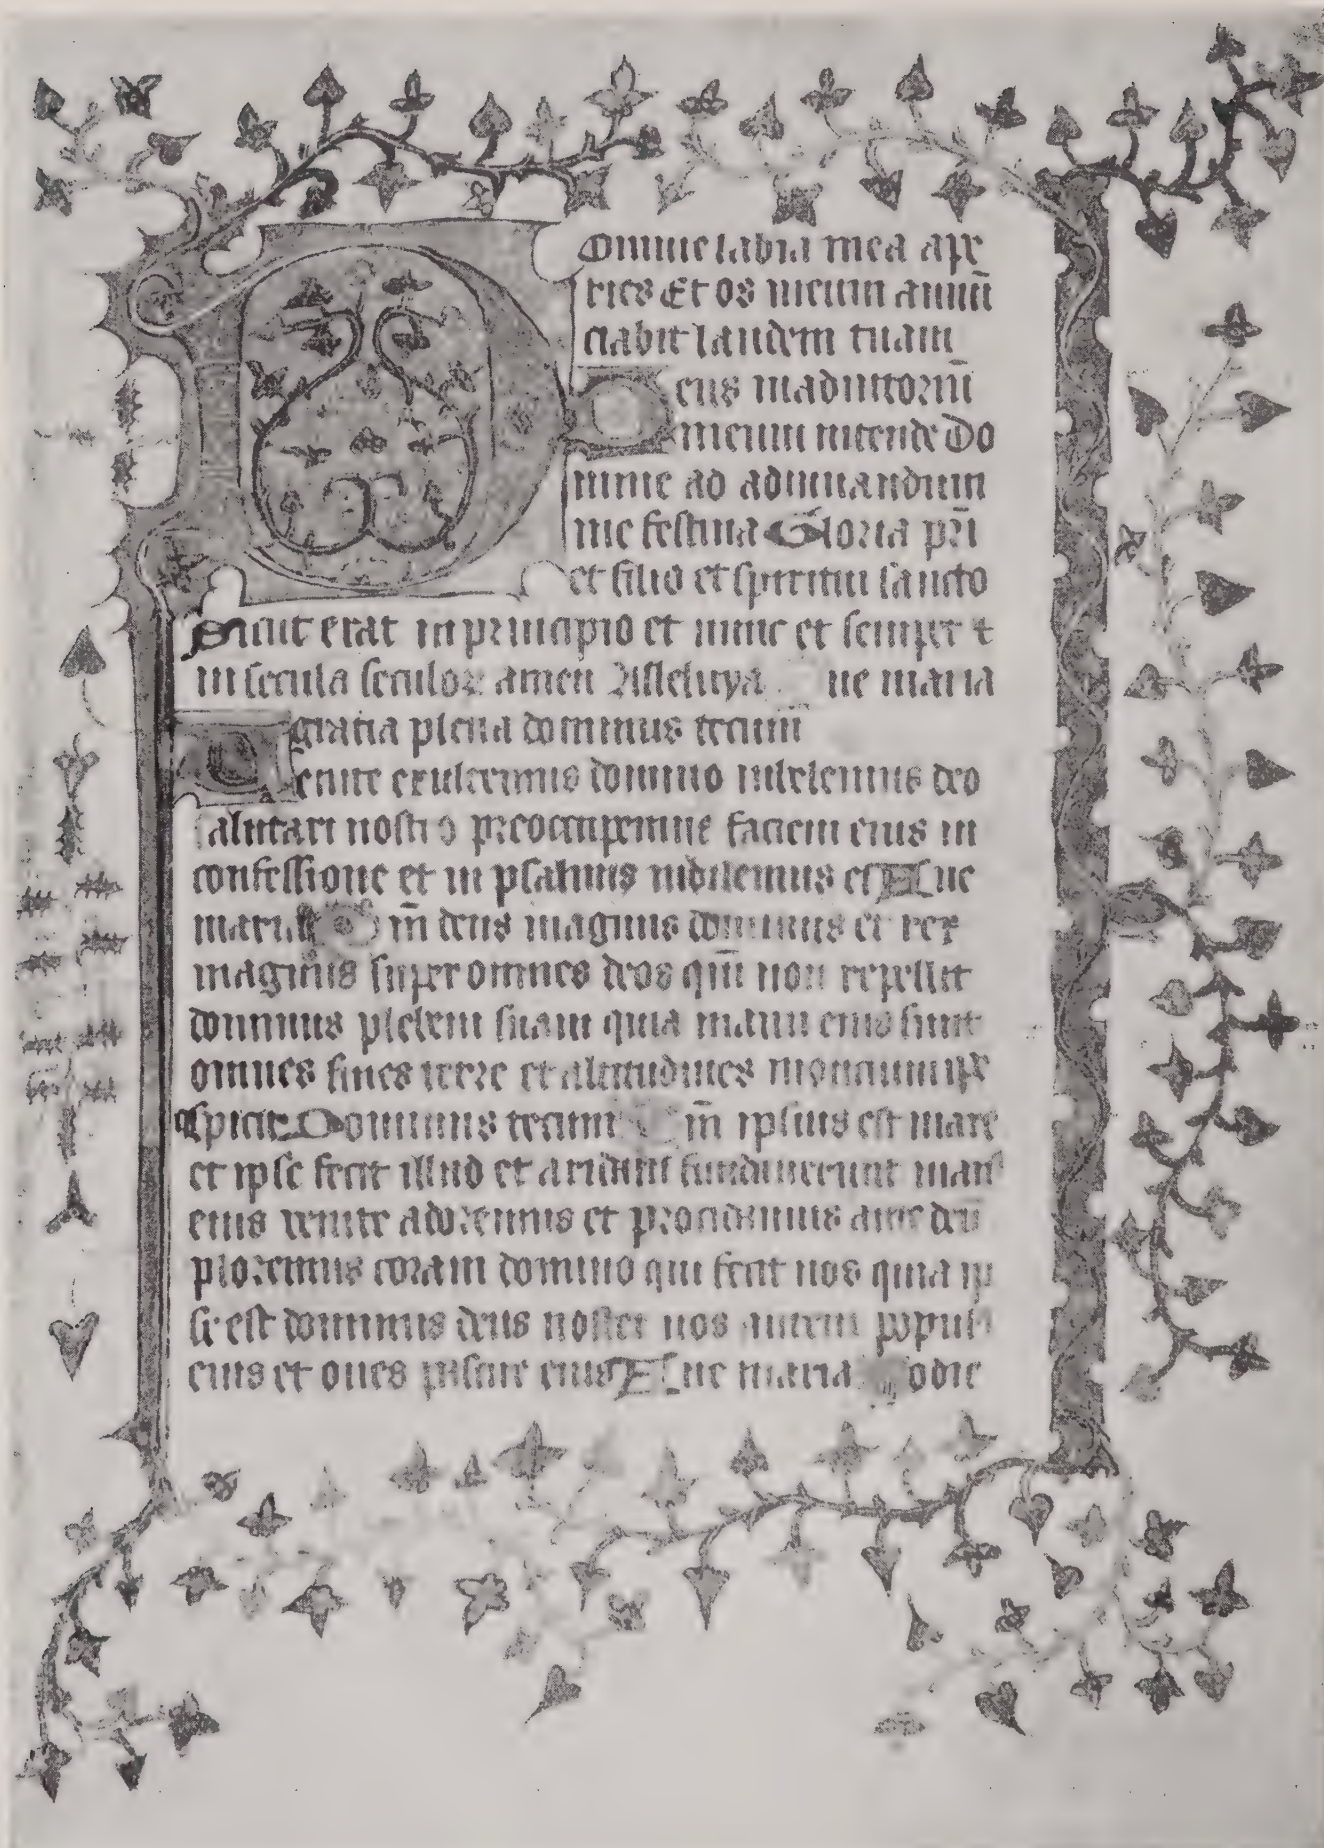 Domine labia mea ape
ries Et os meum annū
ciabit laudem tuam
Deus in adiutoriū
meum intende Do
mine ad adiuuandum
me festina Gloria pr̄i
et filio et spiritui sancto
Sicut erat in principio et nunc et semper et
in secula seculoꝝ amen Alleluya ue maria
gratia plena dominus tecum
Venite exultemus domino iubilemus deo
salutari nostro preoccupemus faciem eius in
confessione et in psalmis iubilemus ei Aue
maria Qm̄ deus magnus dominus et rex
magnus super omnes deos qm̄ non repellit
dominus plebem suam quia in manu eius sunt
omnes fines terre et altitudines moncium ipse
aspicit Dominus tecum Qm̄ ipsius est mare
et ipse fecit illud et aridam fundauerunt man
eius venite adoremus et procidamus ante deū
ploremus coram domino qui fecit nos quia ip
se est dominus deus noster nos autem popul
eius et oues pascue eius Aue maria odie